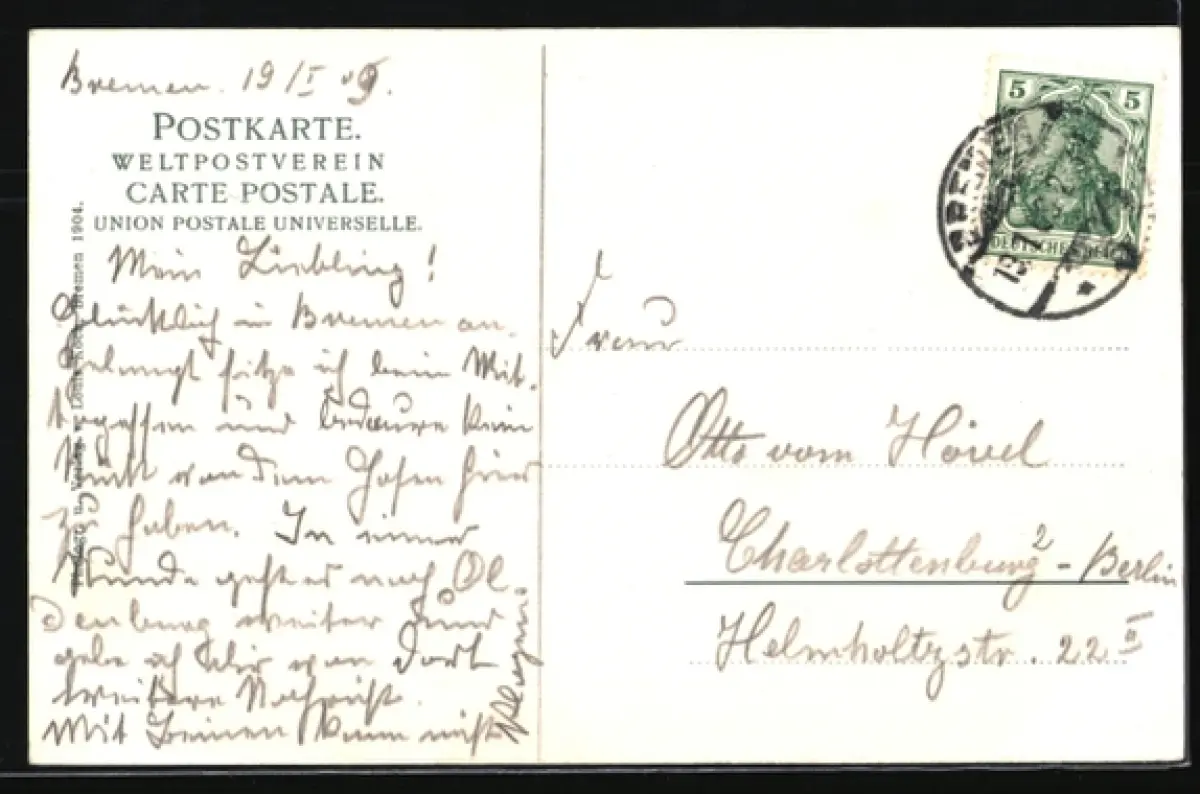 Bremen. 19/I 09.
POSTKARTE.
WELTPOSTVEREIN
CARTE POSTALE.
UNION POSTALE UNIVERSELLE.
Mein Liebling!
Glücklich in Bremen an-
gelangt sitze ich beim Mit-
tagessen und bedaure kein
von dem Hafen hier
zu haben. In einer
Stunde geht es nach Ol
denburg weiter und
gebe ich Dir von dort
weitere Nachricht.
Mit kann nicht
Bremen 1904.
5 5
DEUTSCHES REICH
BREMEN
Frau
Otto vom Hövel
Charlottenburg 2 - Berlin
Helmholtzstr. 22 II